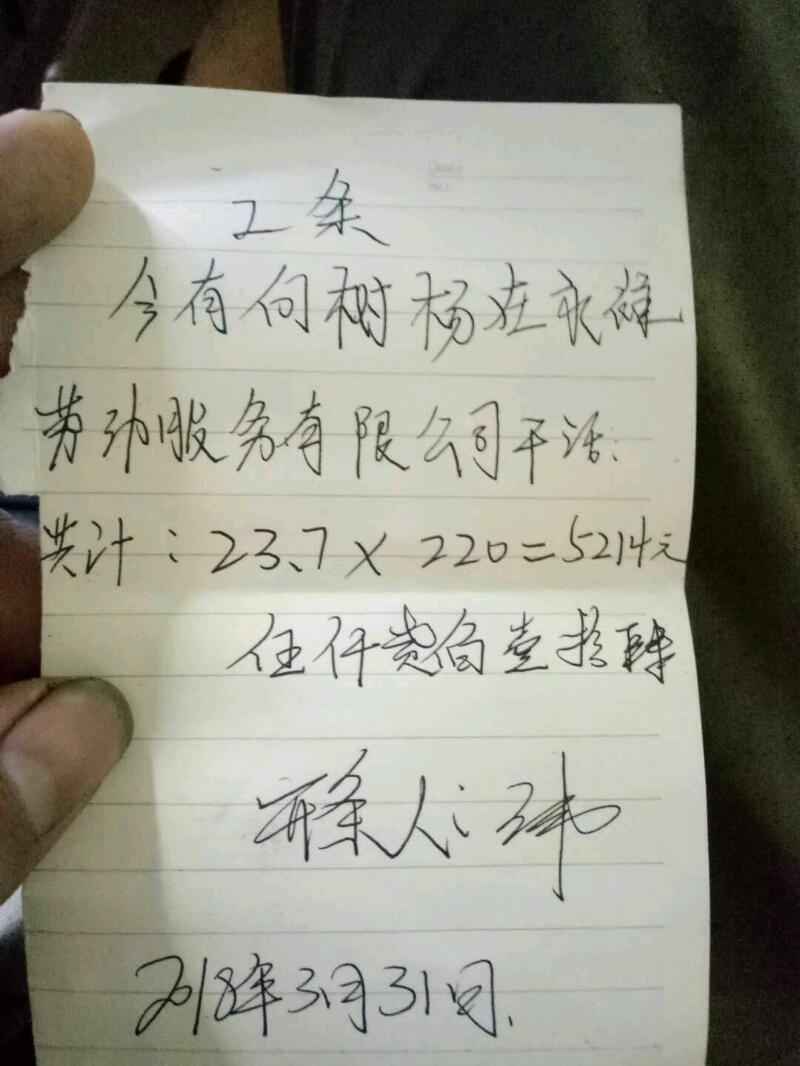 工条
今有向树杨在永雄
劳动服务有限公司干活:
共计:23.7×220=5214元
伍仟贰佰壹拾肆
开条人:
2018年3月31日.